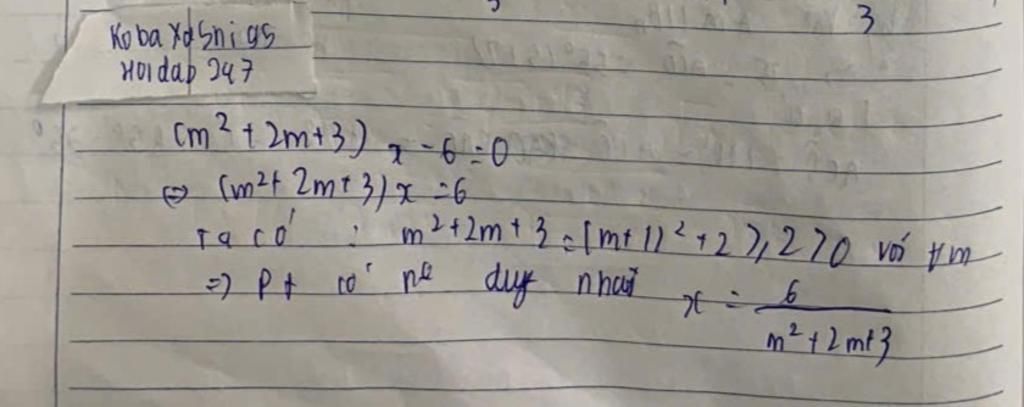 3
KobaYaSnigs
Hoidap 247
(m² + 2m + 3) x - 6 = 0
⇔ (m² + 2m + 3) x = 6
Ta có : m² + 2m + 3 = (m + 1)² + 2 ≥ 2 > 0 với ∀m
⇒ pt có n⁰ duy nhất x = 6 / (m² + 2m + 3)